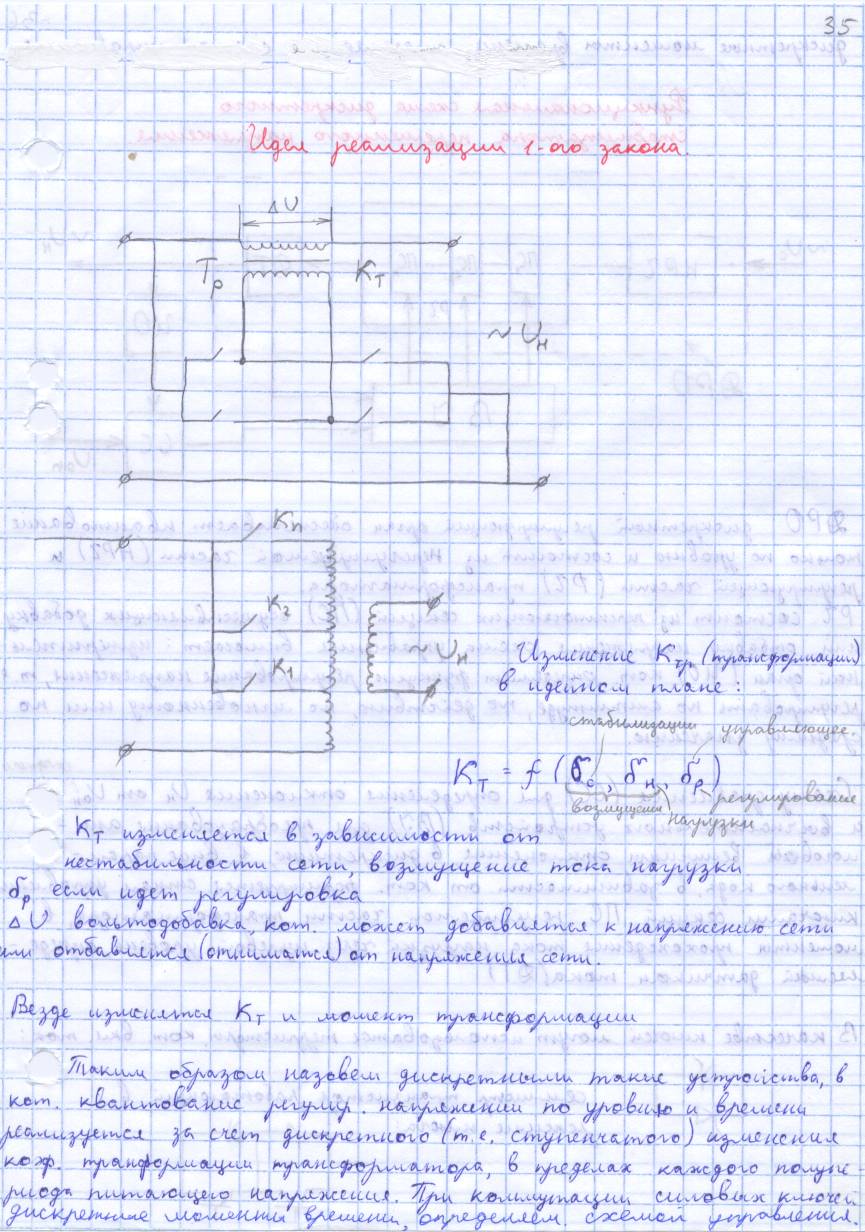 35
Идея реализации 1-ого закона.
ΔU
Тр
Кт
~ Uн
Кn
К2
К1
~ Uн
Изменение Ктр. (трансформации)
в идейном плане:
стабилизации
управляющее
Кт = f (бс, бн, бр)
возмущения
нагрузки
регулирование
Кт изменяется в зависимости от
нестабильности сети, возмущение тока нагрузки
бр если идет регулировка
ΔU вольтодобавка, кот. может добавляется к напряжению сети
или отбавляется (отнимается) от напряжения сети.
Везде изменятся Кт и момент трансформации
Таким образом назовем дискретными такие устройства, в
кот. квантование регулир. напряжении по уровню и времени
реализуется за счет дискретного (т.е. ступенчатого) изменения
коэф. трансформации трансформатора, в пределах каждого полупе-
риода питающего напряжения. При коммутации силовых ключей
дискретные моменты времени, определяем. схемой управления.